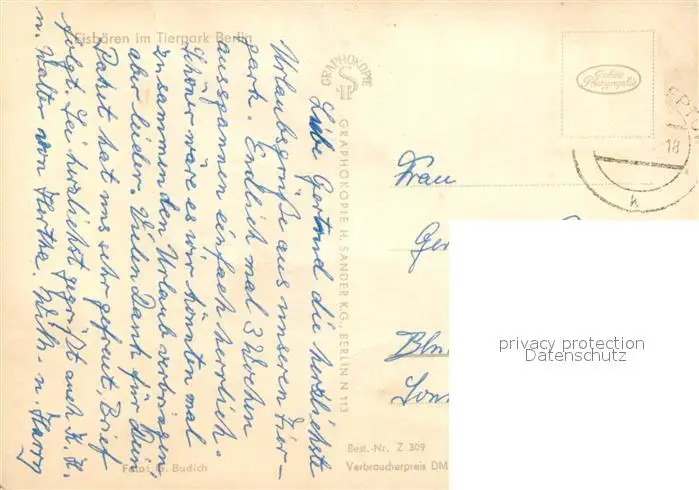 Eisbären im Tierpark Berlin
Liebe Gertrud die herzlichste
Urlaubsgrüße aus unseren Tier-
park. Endlich mal 3 Wochen
ausspannen einfach herrlich.
Schöner wäre es wir könnten mal
zusammen den Urlaub verbringen,
aber leider. Vielen Dank für Dein
Paket hat uns sehr gefreut. Brief
folgt. Sei herzlichst gegrüßt auch K. H.
u. Walter von Hertha. Willi. u. Harry
Foto: G. Budich
GRAPHOKOPIE
GRAPHOKOPIE H. SANDER K.G., BERLIN N 113
Echte
Photographie
18
h
Frau
Best.-Nr. Z 309
Verbraucherpreis DM
privacy protection
Datenschutz